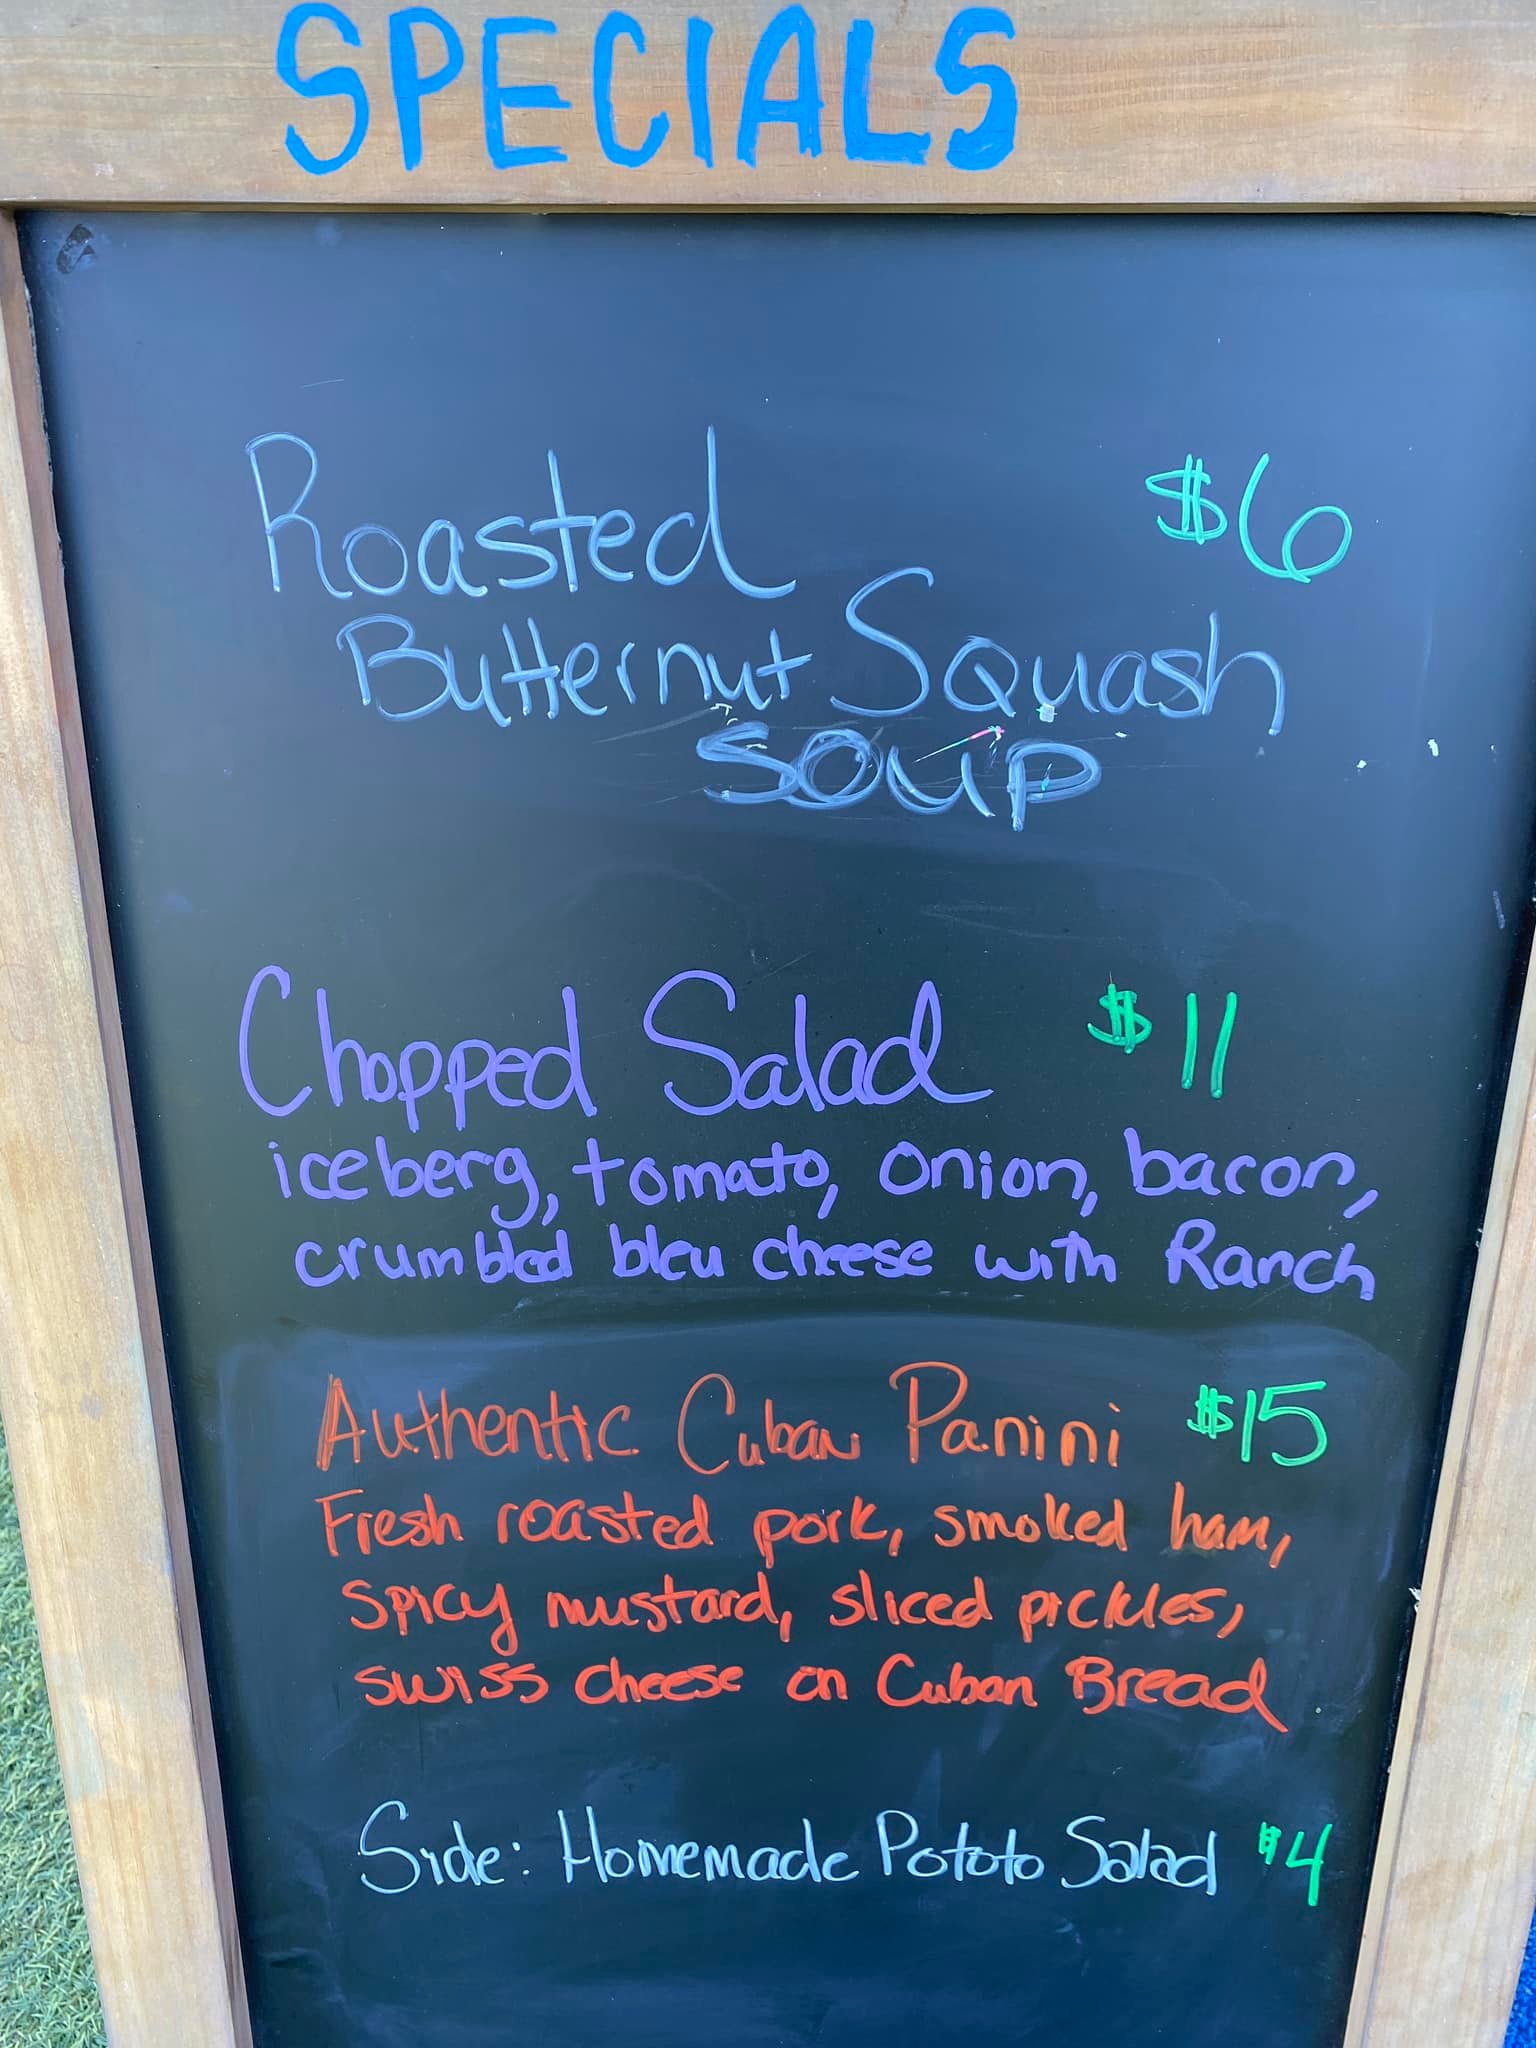 SPECIALS
Roasted $6
Butternut Squash
soup
Chopped Salad $11
iceberg, tomato, onion, bacon,
crumbled bleu cheese with Ranch
Authentic Cuban Panini $15
Fresh roasted pork, smoked ham,
spicy mustard, sliced pickles,
swiss cheese on Cuban Bread
Side: Homemade Pototo Salad $4